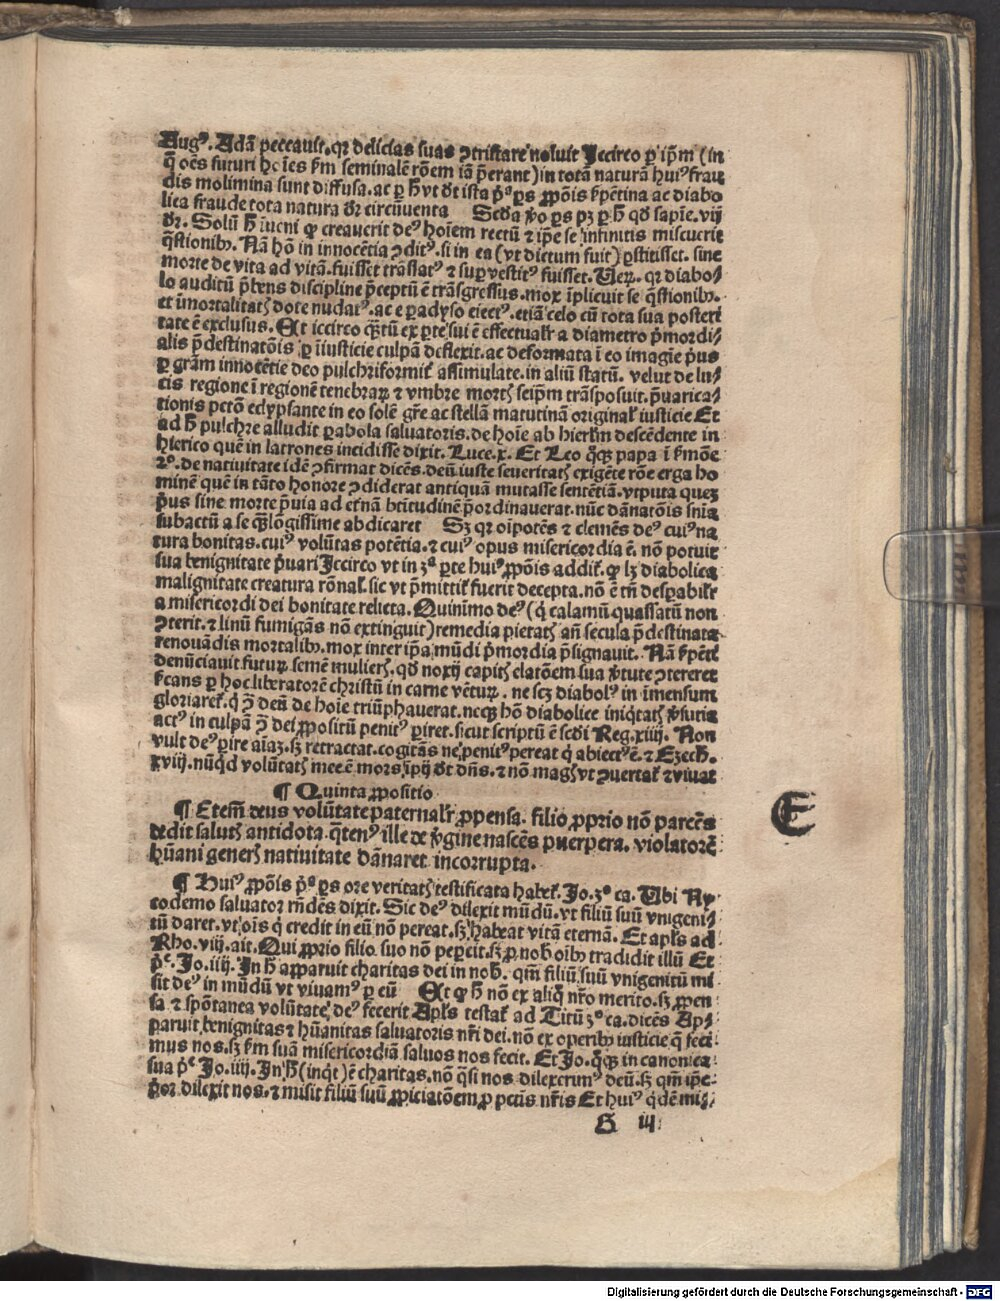 Augꝰ. Adā peccauit. qꝛ delicias suas ꝯtristare noluit Jccirco ꝑ ip̄m (in
q̄ oēs futuri hoīes ẜm seminalē rōem iā p̄erant) in totā naturā huiꝰ frau
dis molimina sunt diffusa. ac ꝑ h̄ vt dt̄ ista p̄ª ꝑs ꝓpōis ẜpētina ac diabo
lica fraude tota natura dr̄ circūuenta Scd̄a v̄o ꝑs pꝫ ꝑ h̄ qd̄ sapīe. vij
dr̄. Solū h̄ īueni ꝙ creauerit deꝰ hoīem rectū ⁊ ip̄e se infinitis miscuerit
q̄stionibꝫ. Nā hō in innocētia ꝯditꝰ. si in ea (vt dictum fuit) ꝑstitisset. sine
morte de vita ad vitā. fuisset trāslatꝰ ⁊ suꝑvestitꝰ fuisset. Uerꝝ. qꝛ diabo⸗
lo auditū p̄bens discipline p̄ceptū ē trāsgressus. mox īplicuit se q̄stionibꝫ.
et īmortalitatꝭ dote nudatꝰ. ac e ꝑadyso eiectꝰ. etiā celo cū tota sua posteri
tate ē exclusus. Et iccirco qꝫtū ex ꝑte sui ē effectualr̄ a diametro p̄mordi⸗
alis p̄destinatōis ꝑ īiusticie culpā deflexit. ac deformata ī eo imagīe p̄us
ꝑ grām innocētie deo pulchriformit̄ assimulate. in aliū statū. velut de lu⸗
cis regione ī regionē tenebraꝝ ⁊ vmbre mortꝭ seip̄m trāsposuit. p̄uarica⸗
tionis pctō eclypsante in eo solē gr̄e ac stellā matutinā original̄ iusticie Et
ad h̄ pulchre alludit ꝑabola saluatoris. de hoīe ab hierl̄m descēdente in
hierico quē in latrones incidisse dixit. Luce. x. Et Leo q̄qꝫ papa ī ẜmōe
2º. de natiuitate idē ꝯfirmat dicēs. deū iuste seueritatꝭ exigēte rōe erga ho
minē quē in tāto honore ꝯdiderat antiquā mutasse sentētiā. vtputa queꝫ
p̄us sine morte p̄uia ad et̄nā btītudinē p̄ordinauerat. nūc dānatōis snīa
subactū a se qꝫlōgissime abdicaret Sꝫ qꝛ oīpotēs ⁊ clemēs deꝰ cuiꝰ na
tura bonitas. cuiꝰ volūtas potētia. ⁊ cuiꝰ opus misericordia ē. nō potuit
sua benignitate p̄uari Jccirco vt in 3ª ꝑte huiꝰ ꝓpōis addit̄. ꝙ lꝫ diabolica
malignitate creatura rōnal̄. sic vt p̄mittit̄ fuerit decepta. nō ē tn̄ desꝑabilr̄
a misericordi dei bonitate relicta. Quinimo deꝰ (q̇ calamū quassatū non
ꝯterit. ⁊ linū fumigās nō extinguit) remedia pietatꝭ an̄ secula p̄destinata
renouādis mortalibꝫ. mox inter ip̄a mūdi p̄mordia p̄signauit. Nā ẜpēti
denūciauit futuꝝ semē mulierꝭ. qd̄ noxij capitꝭ elatōem sua v̄tute ꝯtereret
ẜcans ꝑ hoc liberatorē christū in carne vētuꝝ. ne scꝫ diabolꝰ in īmensum
gloriaret̄. q̇ ꝯ̄ deū de hoīe triūphauerat. necqꝫ hō diabolice iniq̇tatꝭ v̄sutia
actꝰ in culpā ꝯ̄ dei ꝓpositū penitꝰ ꝑiret. sicut scriptū ē scd̄i Reg. xiiij. Non
vult deꝰ ꝑire aīaꝫ. sꝫ retractat. cogitās ne penitꝰ pereat q̇ abiectꝰ ē. ⁊ Ezech.
xviij. nūq̇d volūtatꝭ mee ē mors īpij dt̄ dn̄s. ⁊ nō magꝭ vt ꝯuertat̄ ⁊ viuat
¶ Quinta ꝓpositio
¶ Etem̄ deus volūtate paternalr̄ ꝓpensa. filio ꝓprio nō parcēs
dedit salutꝭ antidota. q̄tenꝰ ille de v̄gine nascēs puerpera. violatorē
hūani generꝭ natiuitate dānaret incorrupta.
E
¶ Huiꝰ ꝓpōis p̄ª ꝑs ore veritatꝭ testificata habet̄. Jo. 3º ca. Ubi Ny
codemo saluator rn̄dēs dixit. Sic deꝰ dilexit mūdū. vt filiū suū vnigeni⸗
tū daret. vt oīs q̇ credit in eū nō pereat. sꝫ habeat vitā eternā. Et apl̄s ad
Rho. viij. ait. Qui ꝓprio filio suo nō peꝑcit. sꝫ ꝓ nob̄ oībꝫ tradidit illū Et
p̄ᵉ. Jo. iiij. In h̄ apparuit charitas dei in nob̄. qm̄ filiū suū vnigenitū mi
sit deꝰ in mūdū vt viuamꝰ ꝑ eū Et ꝙ h̄ nō ex aliq̇ nr̄o merito. sꝫ ꝓpen
sa ⁊ spōtanea volūtate deꝰ fecerit Apl̄s testat̄ ad Titū 3º ca. dicēs Ap⸗
paruit benignitas ⁊ hūanitas saluatoris nr̄i dei. nō ex operibꝫ iusticie q̄ feci
mus nos. sꝫ ẜm suā misericordiā saluos nos fecit. Et Jo. q̄qꝫ in canonica
sua p̄ᵉ Jo. iiij. In h̄ (inq̇t) ē charitas. nō q̄si nos dilexerimꝰ deū. sꝫ qm̄ ip̄e
p̄or dilexit nos. ⁊ misit filiū suū ꝓpiciatōem ꝓ pctīs nr̄is Et huiꝰ q̇dē mi⸗
G iij
Digitalisierung gefördert durch die Deutsche Forschungsgemeinschaft - DFG